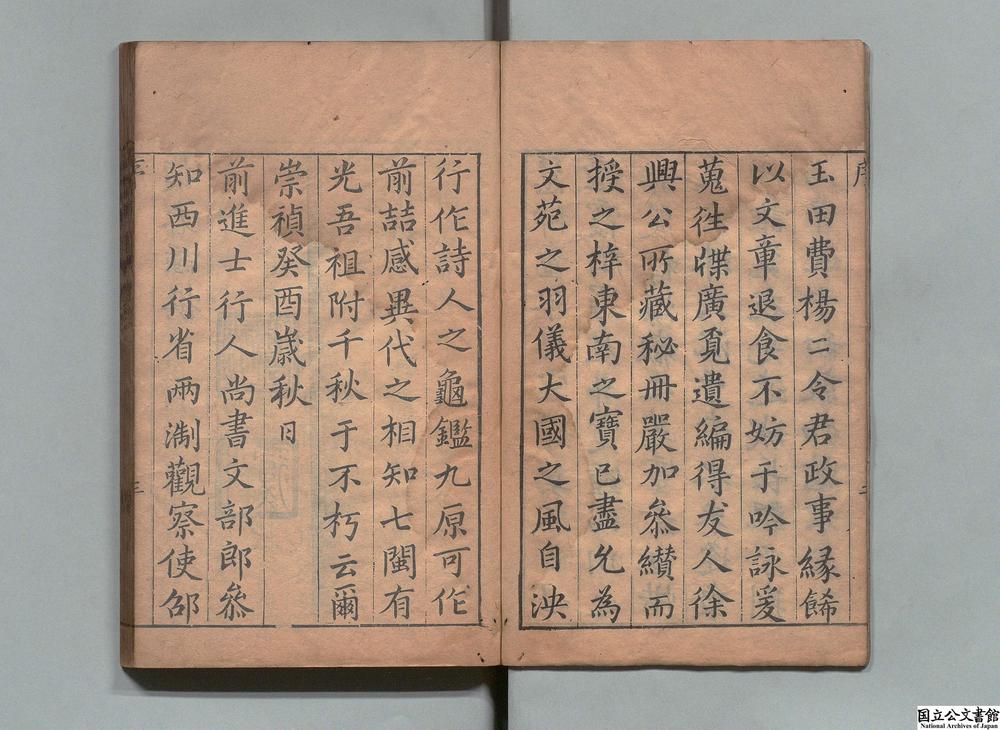 序
玉田費楊二令君政事緣餙
以文章退食不妨于吟詠爰
蒐徃牒廣覔遺編得友人徐
興公所藏秘冊嚴加叅纉而
授之梓東南之寶已盡允為
文苑之羽儀大國之風自泱
二
行作詩人之龜鑑九原可作
前喆感異代之相知七閩有
光吾祖附千秋于不朽云爾
崇禎癸酉歲秋日
前進士行人尚書文部郎叅
知西川行省兩淛觀察使邵
三
国立公文書館
National Archives of Japan